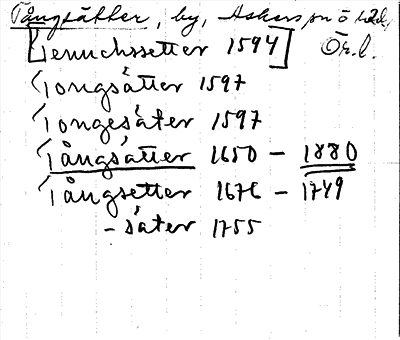 Tångsätter, by, Askers sn Ö hd,
[Tennchssetter 1594] Ör. l.
Tongsätter 1597
Tongesäter 1597
Tångsätter 1650 – 1880
Tångsetter 1676 – 1749
– säter 1755